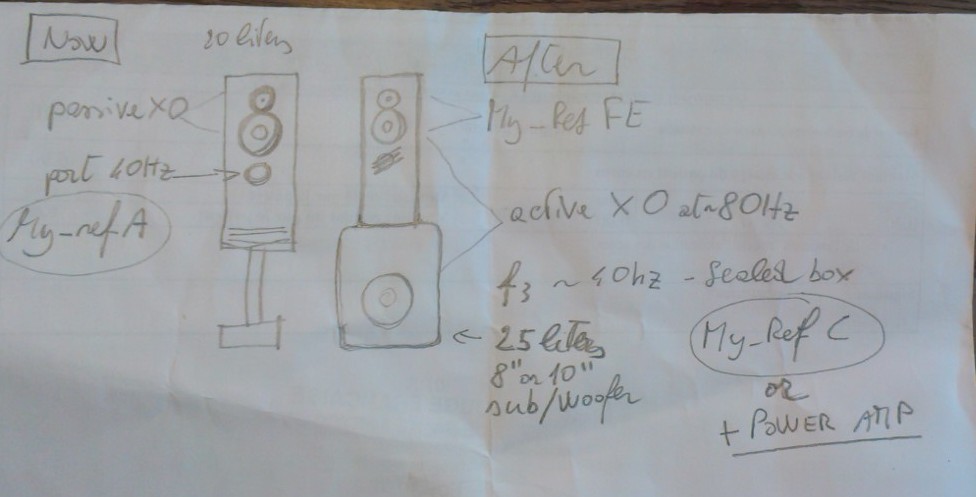 Now
20 liters
passive XO
port 40Hz
My_ref A
After
My_Ref FE
active XO at ~80Hz
f3 ~ 40hz - Sealed box
25 liters
8" or 10"
sub/woofer
My_Ref C
or
+ POWER AMP